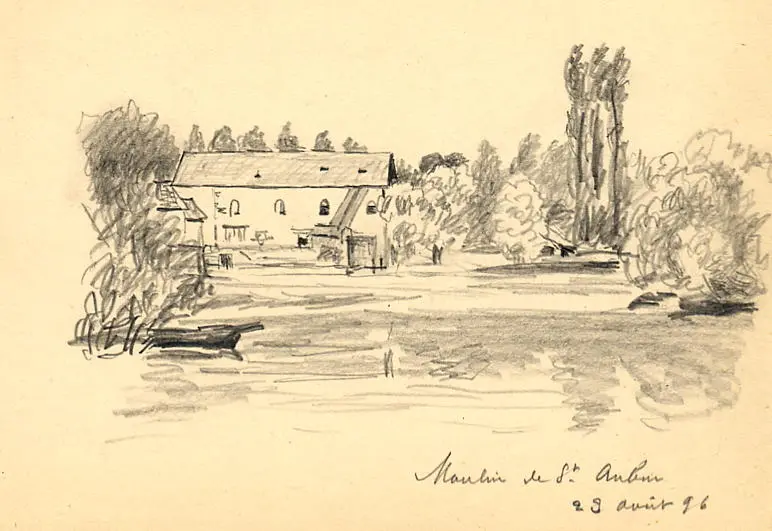 Moulin de St Aubin
23 août 96